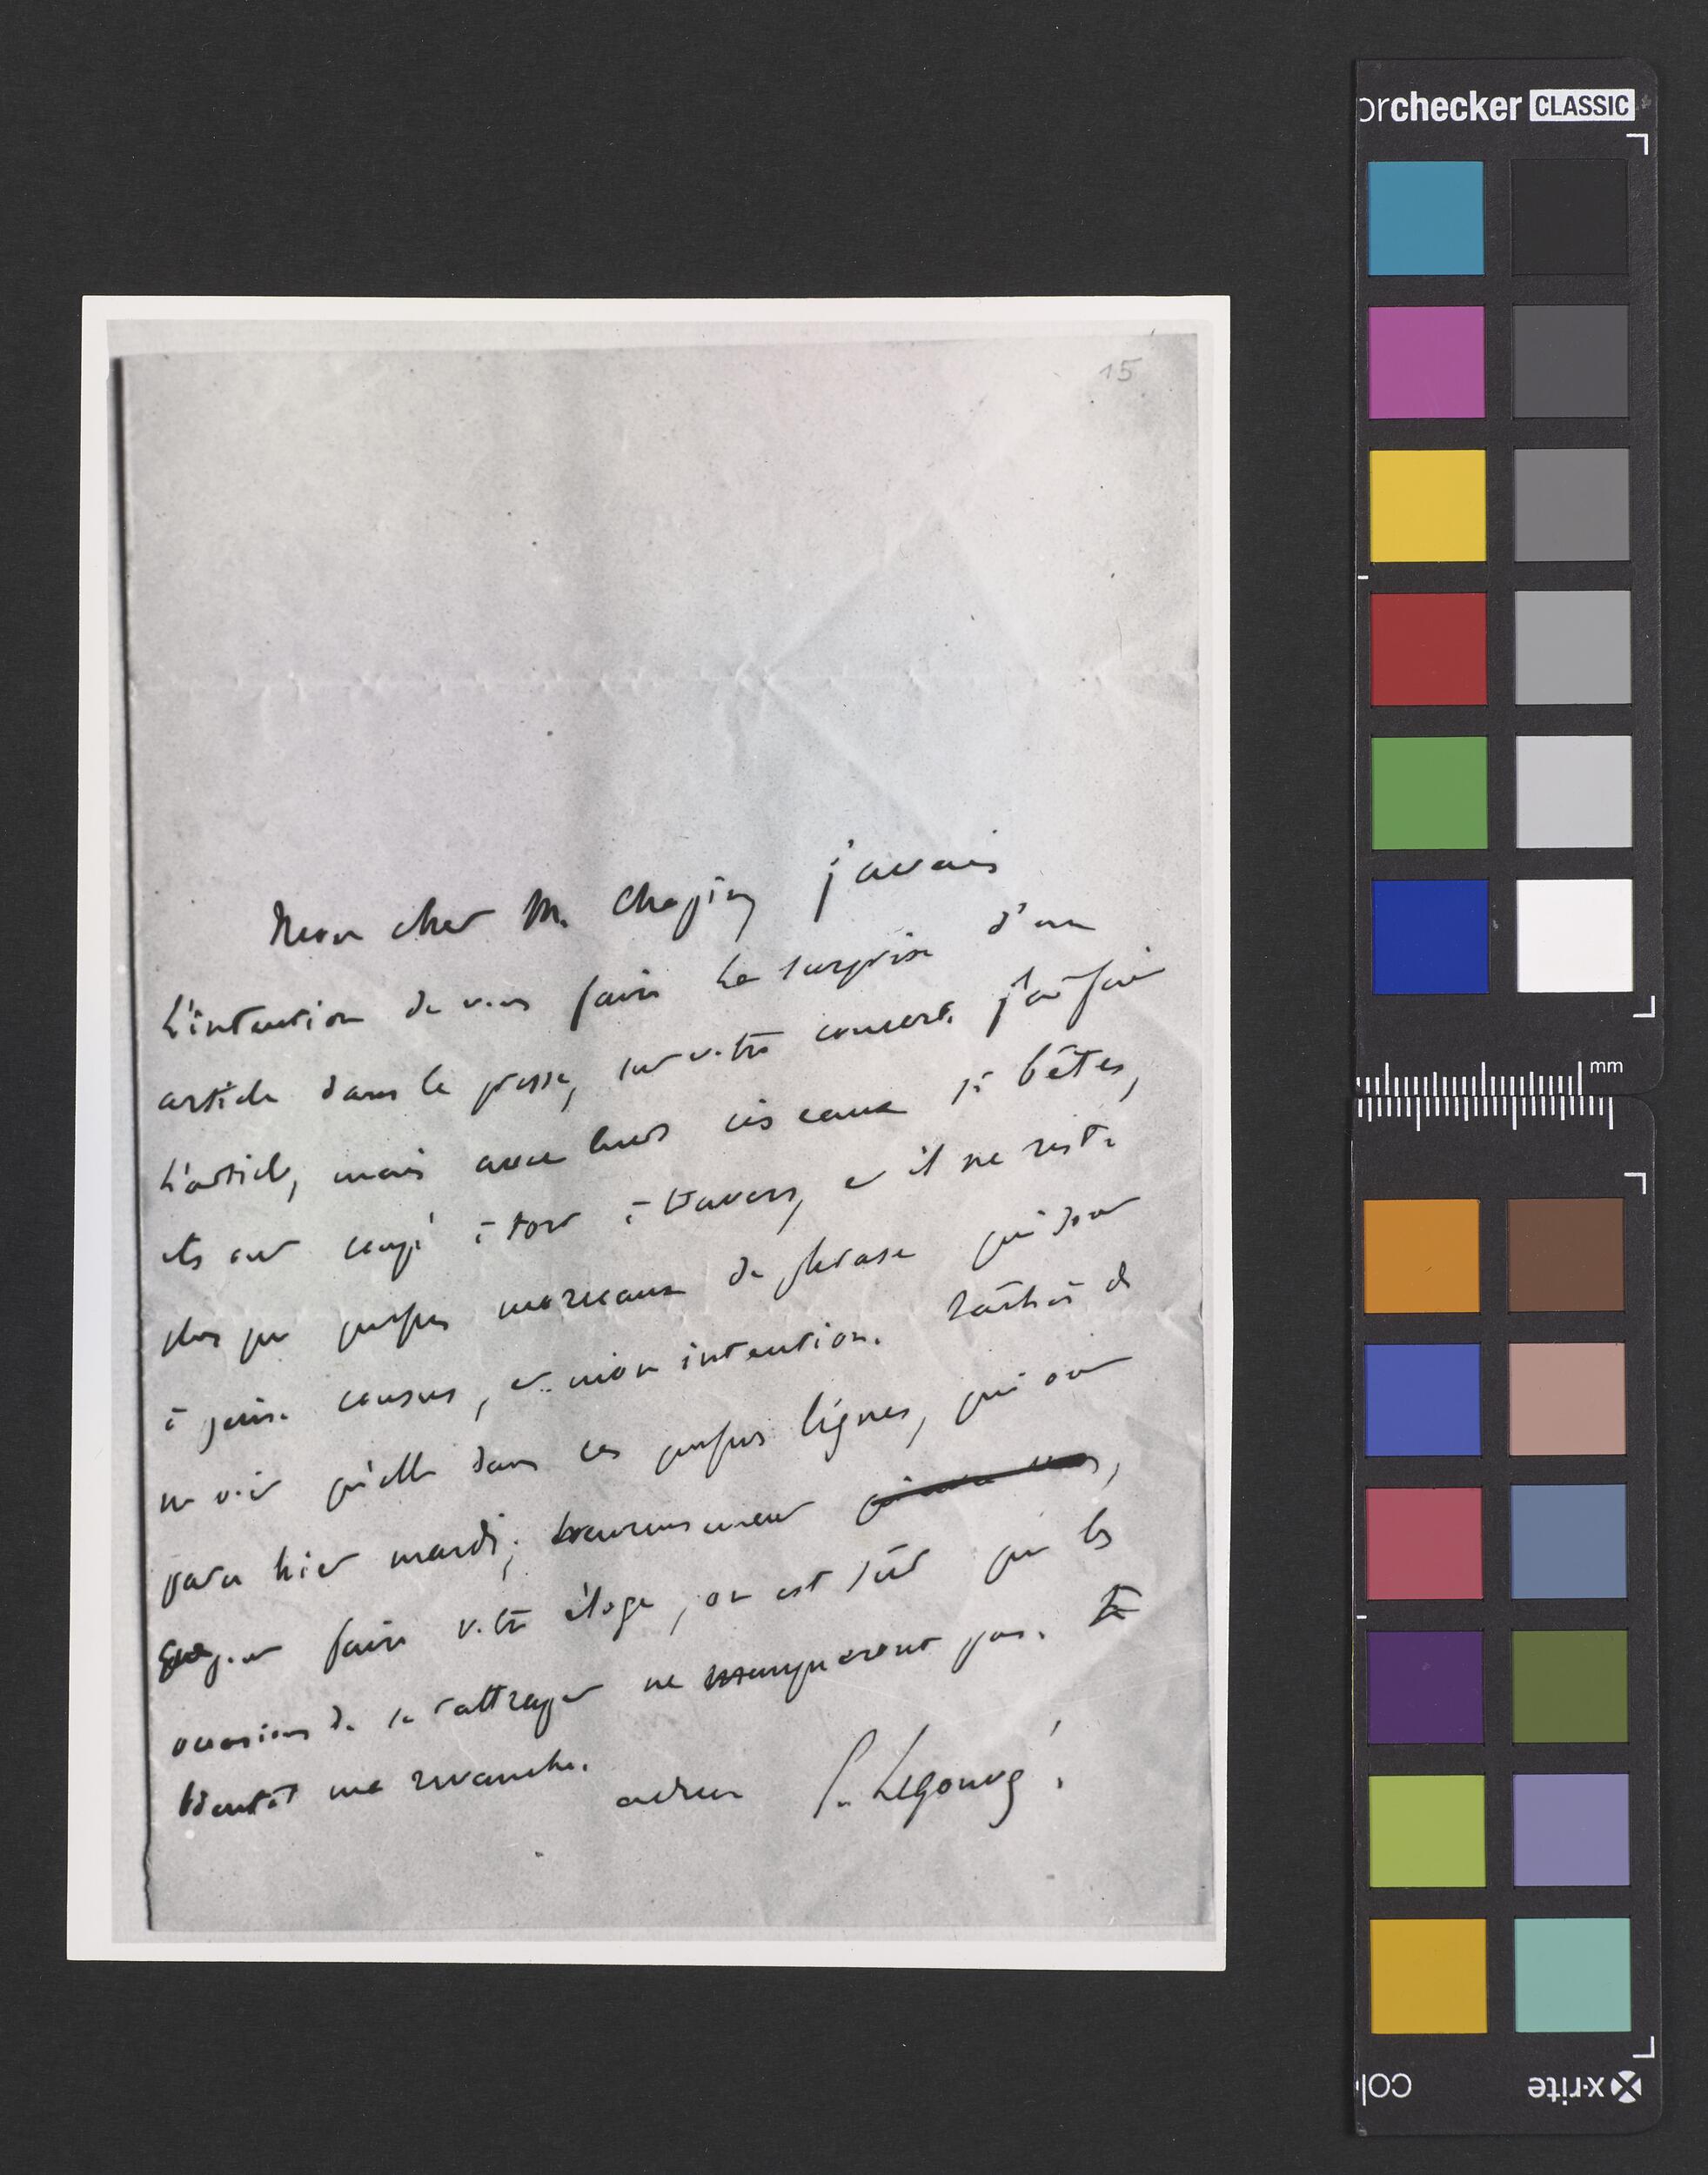 15
Mon cher M. Chopin, j'avais
l'intention de vous faire la surprise d'un
article dans la presse, sur votre concert. j'ai fait
l'article, mais avec leurs ciseaux si bêtes,
ils ont coupé à tort à travers, et il ne reste
plus que quelques morceaux de phrase qui sont
à peine cousus, et mon intention. Tâchez de
ne voir qu'elle dans ces quelques lignes, qui ont
paru hier mardi; heureusement
que pour faire votre éloge, on est sûr que les
occasions de se rattraper ne manqueront pas.
bientôt ma revanche.
adieu E. Legouvé.
orchecker CLASSIC
mm
x-rite
col